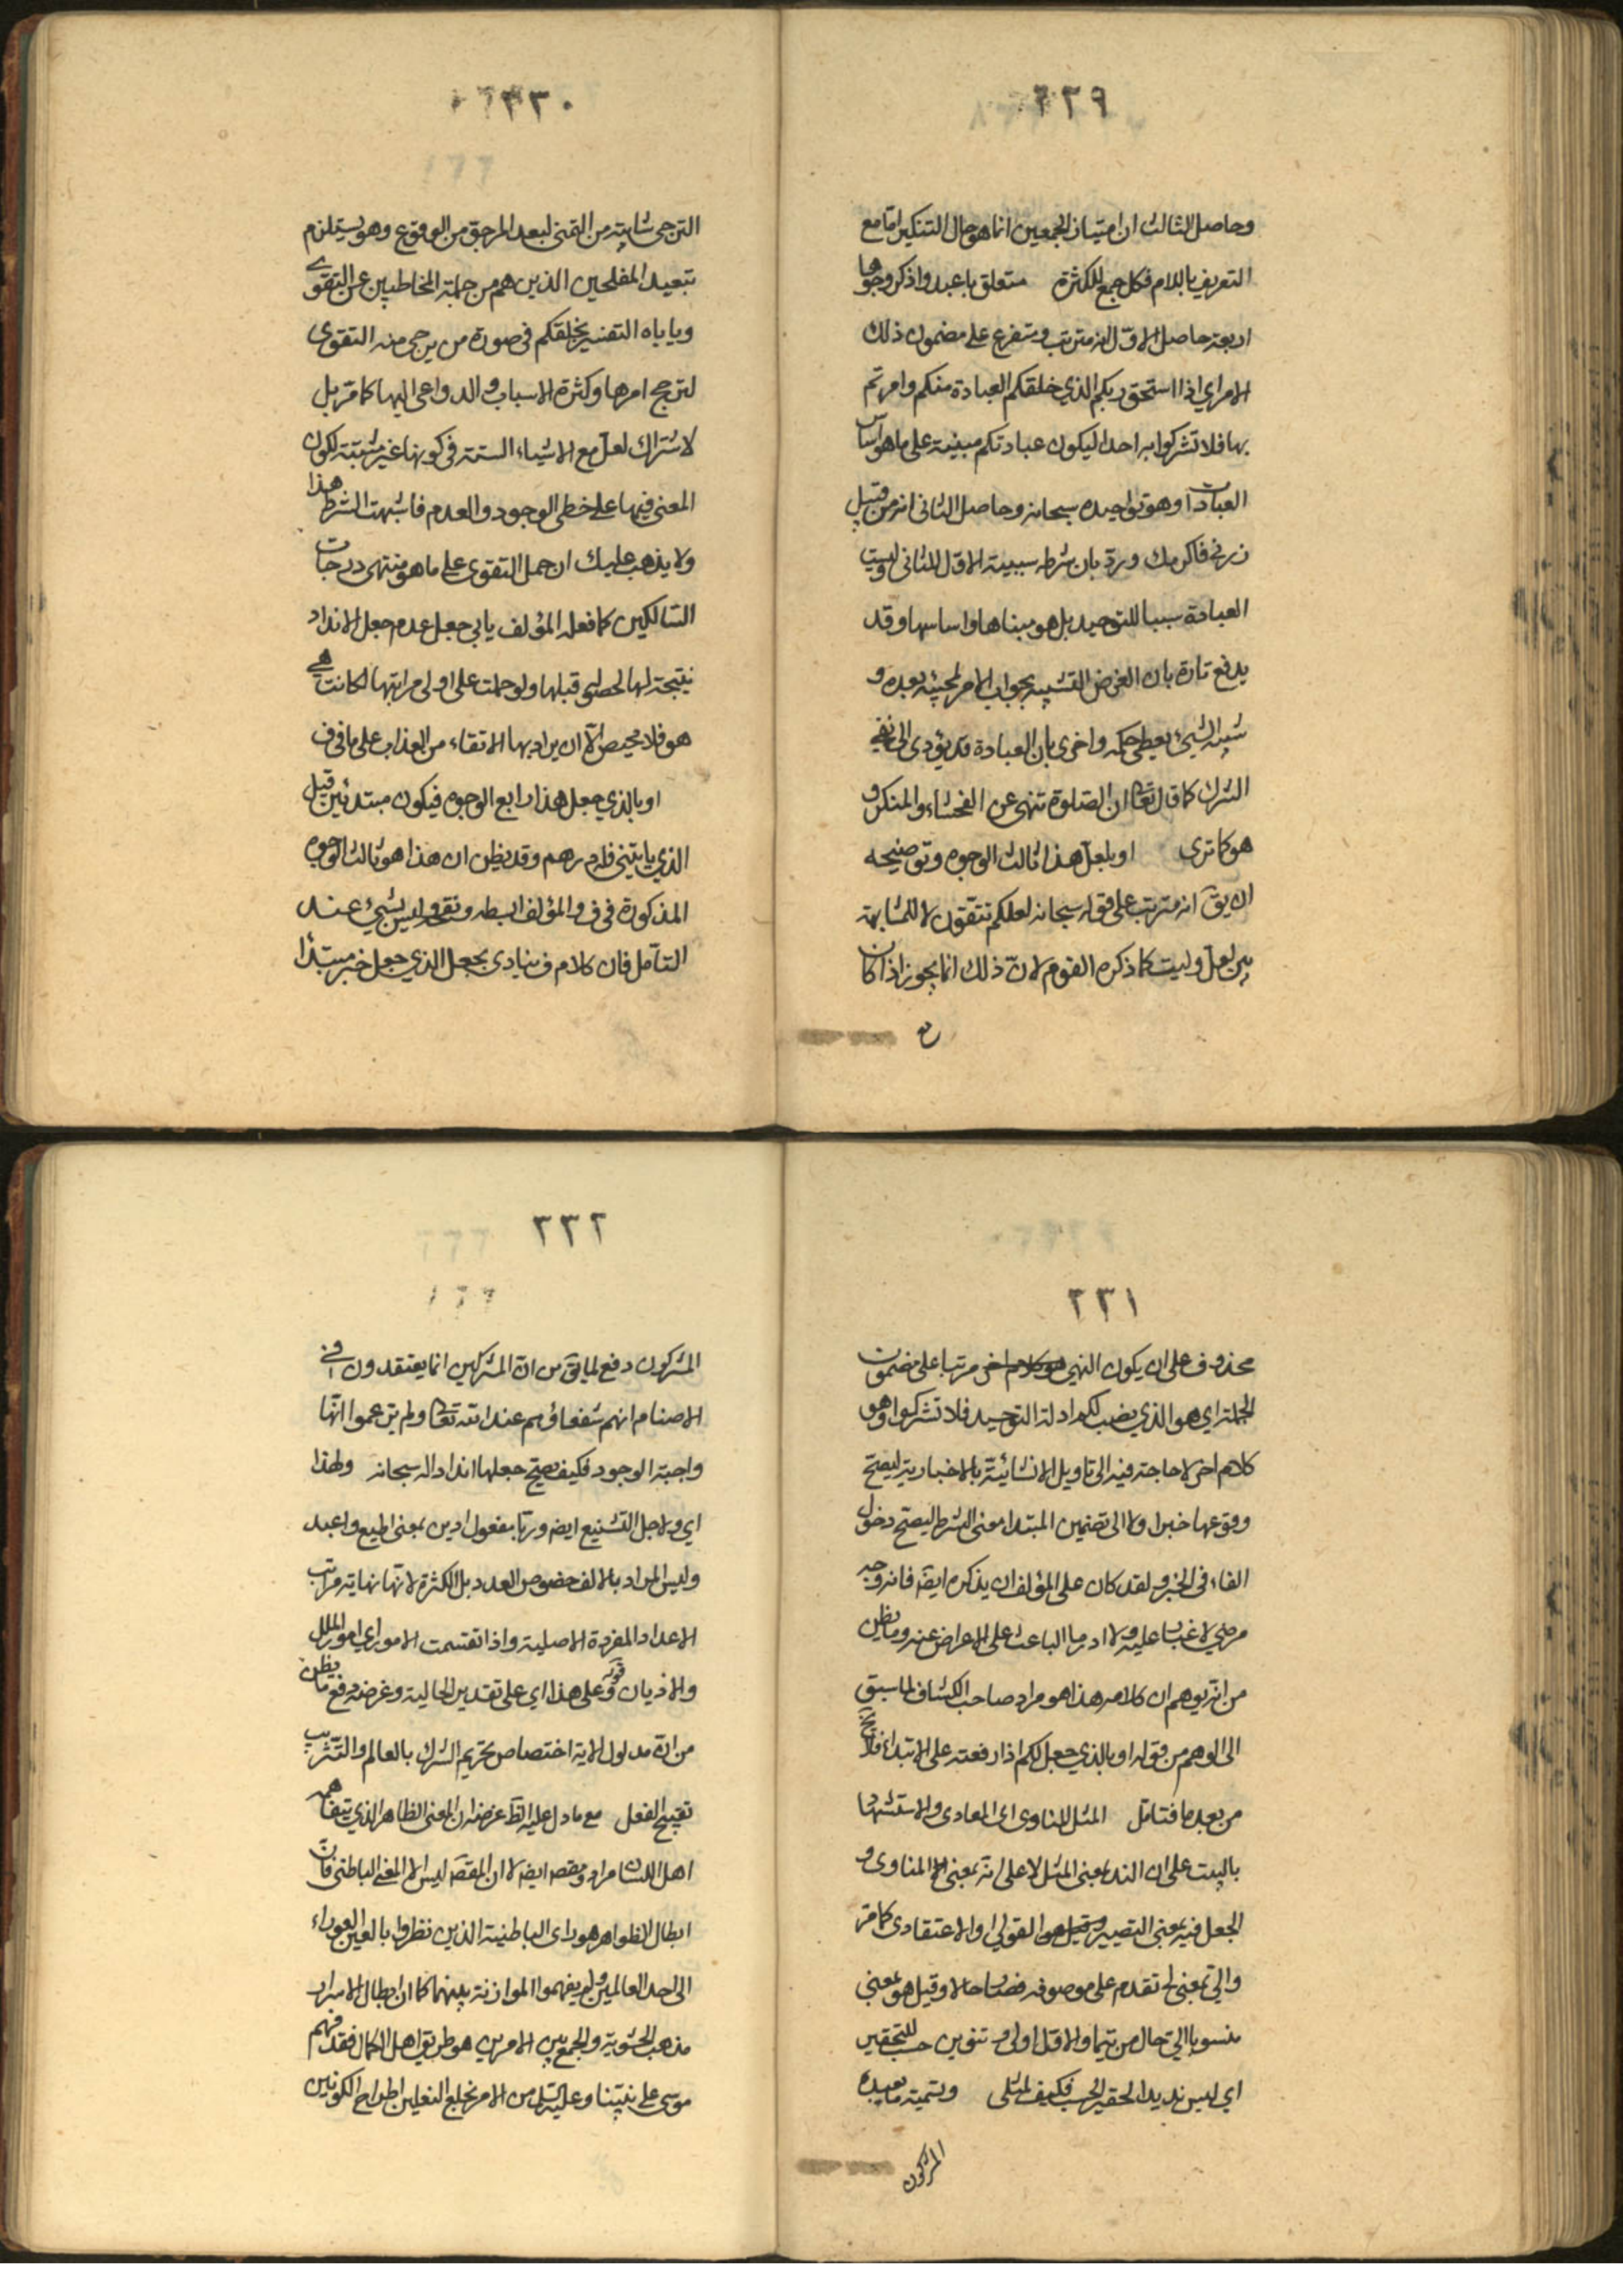 ٢٢٩
وحاصل الثالث ان امتياز الجمعين انما هو حال التنكير امّا مع
التعريف باللام فكل جمع للكثرة متعلق باعبدوا ذكر وجوها
اربعة حاصل الاوّل انه مترتب ومتفرع على مضمون ذلك
الامر اي اذا استحق ربكم الذي خلقكم العبادة منكم وامرتم
بها فلا تشركوا به احدا ليكون عبادتكم مبنية على ما هو اساس
العبادات وهو توحيده سبحانه وحاصل الثاني انه من قبيل
زرني فاكرمك وردّ بان شرطه سببية الاوّل للثاني وليست
العبادة سببا للتوحيد بل هو مبناها واساسها وقد
يدفع تارة بان الغرض التشبيه بجواب الامر لمجيئه بعده و
شبه الشيء يعطى حكمه واخرى بان العبادة قد يؤدى الى نفي
الشرك كما قال تعالى ان الصلوة تنهى عن الفحشاء والمنكر و
هو كما ترى او بلعلّ هذا ثالث الوجوه وتوضيحه
ان يقَ انه مترتب على قوله سبحانه لعلكم تتّقون لا للمشابهة
بين لعل وليت كما ذكره القوم لانّ ذلك انما يجوز اذا كان
٢٣٠
الترجى شابه من التمنى لبعد المرجوّ من الوقوع وهو يستلزم
تبعيد المفلحين الذين هم من جملة المخاطبين عن التقوى
وياباه التفسير بخلقكم في صورة من يرجى منه التقوى
لترجح امرها وكثرة الاسباب والدواعى اليها كما مرّ بل
لاشتراك لعلّ مع الاشياء الستة في كونها غير مثبتة لكون
المعنى فيها على خطرى الوجود والعدم فاشبهت الشرط هذا
ولا يذهب عليك ان حمل التقوى على ما هو منتهى درجات
السّالكين كما فعله المؤلف يابي جعل عدم جعل الانداد
نتيجة لها لحصوله قبلها ولو حملت على اولى مراتبها لكانت هي
هو فلا محيص الّا ان يراد بها الاتقاء من العذاب على ما في ف
او بالذي جعل هذا رابع الوجوه فيكون مبتدئين قبل
الذي ياتيني فله درهم وقد يظن ان هذا هو ثالث الوجوه
المذكورة في ف والمؤلف بسطه ونقحه وليس بشيء عند
التأمل فان كلام ف ينادى بجعل الذي جعل خبر مبتدا
٢٣١
محذوف على ان يكون النهي مرتبا على مضمون
الجملة اي هو الذي نصب لكم ادلة التوحيد فلا تشركوا وهو
كلام اخر لا حاجة فيه الى تاويل الانشائيّة بالاخبارية ليصحّ
وقوعها خبرا ولا الى تضمين المبتدا معنى الشرط ليصحّ دخول
الفاء في الخبر ولقد كان على المؤلف ان يذكره ايضَ فانه وجه
مرضي لا غبار عليه ولا ادرى ما الباعث على الاعراض عنه وما يظن
من انه يوهم ان كلامه هذا هو مراد صاحب الكشاف لما سبق
الى الوهم من قوله او بالذي جعل لكم اذا رفعته على الابتداء فلا يخ
من بعد ما فتامّل المثل المناوى اى المعادى والاستشهاد
بالبيت على ان الند بمعنى المثل لا على انّه بمعنى المناوى و
الجعل فيه بمعنى التصيير القولى او الاعتقادى كما مرّ
والىّ بمعنى لى تقدم على موصوفه فصار حالا وقيل هو بمعنى
منسوبا اليّ حال من تيما والاوّل اولى وتنوين حسب للتحقير
اي ليس نديدا لحقير الحسب فكيف لمثلى وتسمية ما يعبده
المشركون
٢٣٢
المشركون دفع لما يقَ من انّ المشركين انما يعتقدون في
الاصنام انهم شفعاؤهم عند الله تعالى ولم يزعموا انّها
واجبة الوجود فكيف يصح جعلها اندادا له سبحانه ولهذا
اي ولاجل التشنيع ايضَ وربّا مفعول ادين بمعنى اطيع واعبد
وليس المراد بالالف خصوص العدد بل الكثرة لانّها نهاية مراتب
الاعداد المفردة الاصلية واذا تقسمت الامور اي امور الملل
والاديان قوله وعلى هذا اي على تقدير الحالية وغرضه دفع ما يظن
من انّ مدلول الاية اختصاص تحريم الشرك بالعالم والتثريب
تقبيح الفعل مع ما دل عليه الظَ غرضه ان المعنى الظاهر الذي يتفاهمه
اهل اللسان مراد ومقصَ ايضَ لا ان المقصَ ليس الا المعنى الباطنى فان
ابطال الظواهر هو راى الباطنية الذين نظروا بالعين العوراء
الى احد العالمين ولم يفهموا الموازنة بينهما كما ان ابطال الاسرار
مذهب الحشوية والجمع بين الامرين هو طريق اهل الكمال فقد فهم
موسى على نبيّنا وعليه السلم من الامر بخلع النعلين اطراح الكونين